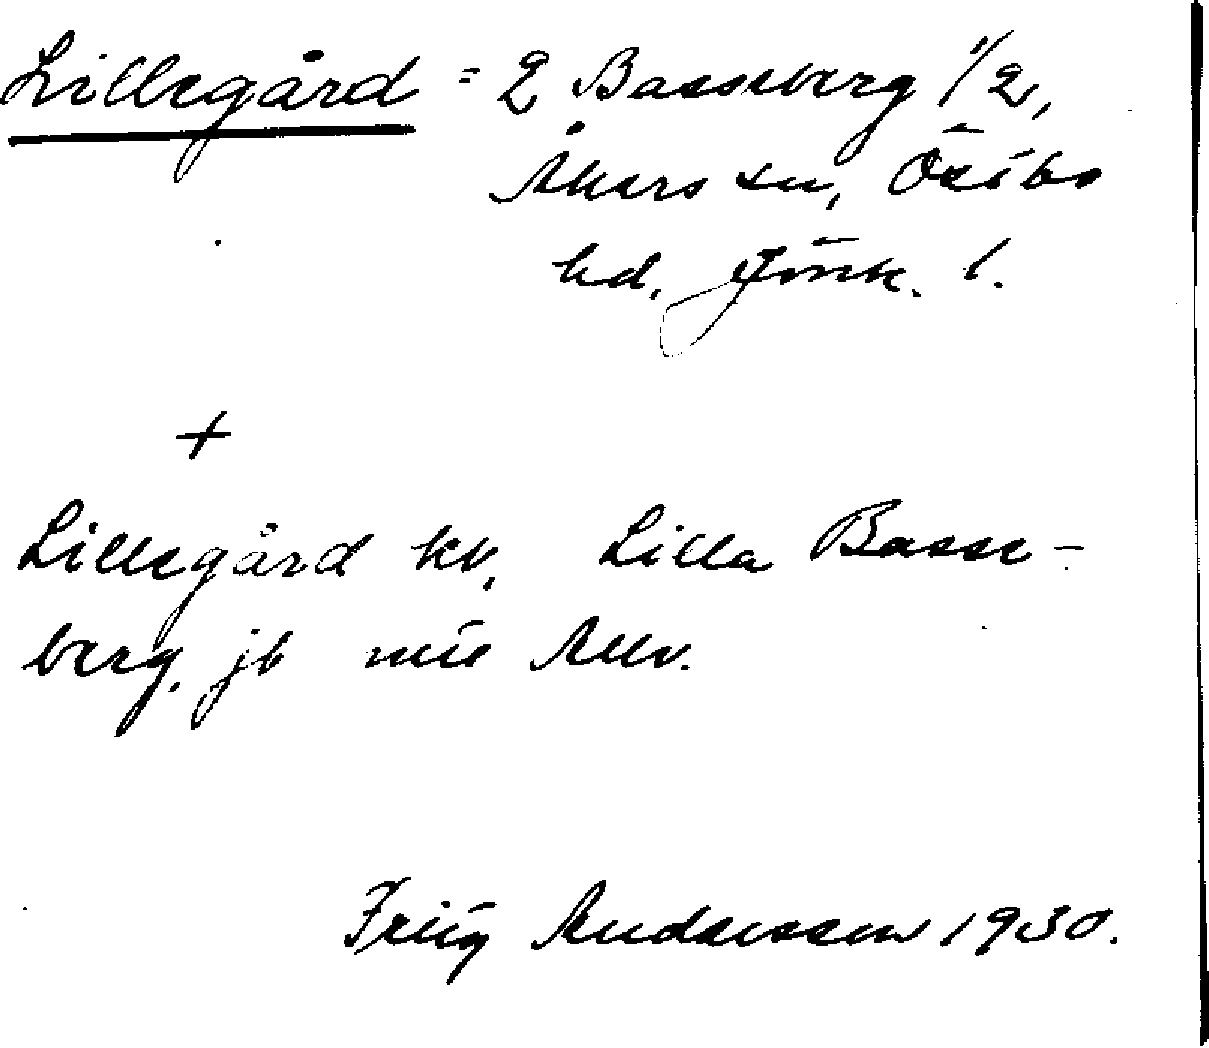 Lillegård = 2 Basseberg 1/2,
Åkers sn, Östbo
hd, Jönk. l.
+
Lillegård kv, Lilla Basse-
berg, jb
Andersson 1930.